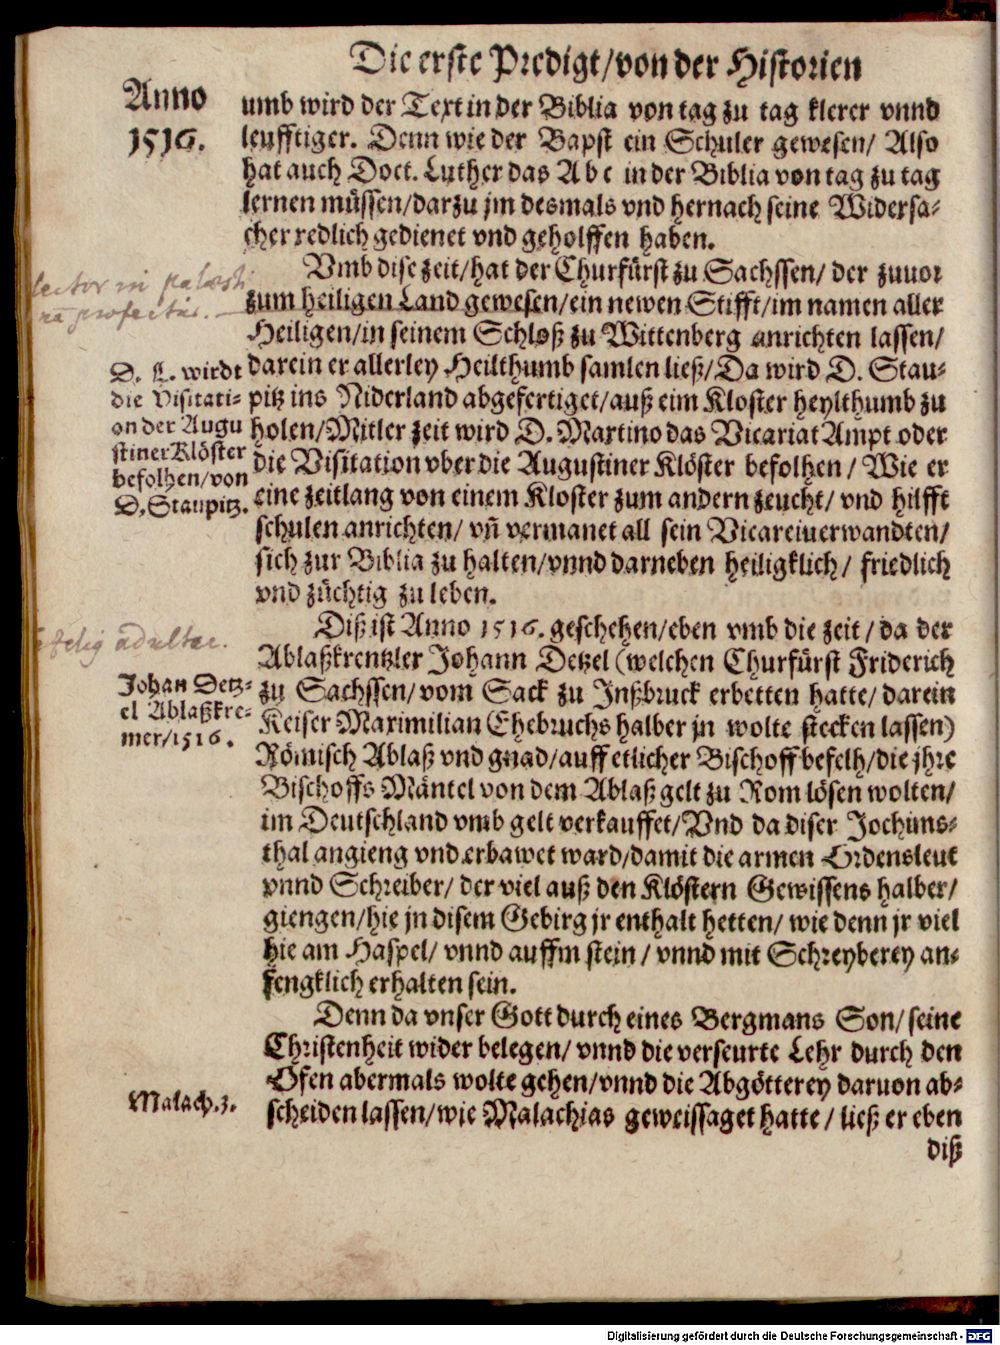 Die erste Predigt/von der Historien
Anno
1516.
umb wird der Text in der Biblia von tag zu tag klerer vnnd
leufftiger. Denn wie der Bapst ein Schuler gewesen/ Also
hat auch Doct. Luther das A b c in der Biblia von tag zu tag
lernen müssen/darzu jm desmals vnd hernach seine Widersa-
cher redlich gedienet vnd geholffen haben.
Vmb dise zeit/hat der Churfürst zu Sachssen/ der zuuor
zum heiligen Land gewesen/ein newen Stifft/im namen aller
Heiligen/in seinem Schloß zu Wittenberg anrichten lassen/
darein er allerley Heilthumb samlen ließ/Da wird D. Stau-
pitz ins Niderland abgefertiget/auß eim Kloster heylthumb zu
holen/Mitler zeit wird D. Martino das Vicariat Ampt oder
die Visitation vber die Augustiner Klöster befolhen/ Wie er
eine zeitlang von einem Kloster zum andern zeucht/ vnd hilfft
schulen anrichten/ vñ vermanet all sein Vicareiuerwandten/
sich zur Biblia zu halten/vnnd darneben heiligklich/ friedlich
vnd züchtig zu leben.
in palæsti
na profectus.
D. L. wirdt
die Visitati-
on der Augu
stiner Klöster
befolhen/von
D. Staupitz.
Diß ist Anno 1516. geschehen/eben vmb die zeit/ da der
Ablaßkrentzler Johann Detzel (welchen Churfürst Friderich
zu Sachssen/vom Sack zu Inßbruck erbetten hatte/ darein
Keiser Maximilian Ehebruchs halber jn wolte stecken lassen)
Römisch Ablaß vnd gnad/auff etlicher Bischoff befelh/die jhre
Bischoffs Mäntel von dem Ablaß gelt zu Rom lösen wolten/
im Deutschland vmb gelt verkauffet/Vnd da diser Jochims-
thal angieng vnd erbawet ward/damit die armen Ordensleut
vnnd Schreiber/ der viel auß den Klöstern Gewissens halber/
giengen/hie jn disem Gebirg jr enthalt hetten/ wie denn jr viel
hie am Haspel/ vnnd auffm stein/ vnnd mit Schreyberey an-
fengklich erhalten sein.
Johan Detz-
el Ablaßkre-
mer/1516.
Denn da vnser Gott durch eines Bergmans Son/ seine
Christenheit wider belegen/ vnnd die verseurte Lehr durch den
Ofen abermals wolte gehen/vnnd die Abgötterey daruon ab-
scheiden lassen/wie Malachias geweissaget hatte/ ließ er eben
Malach.3.
diß
Digitalisierung gefördert durch die Deutsche Forschungsgemeinschaft - DFG